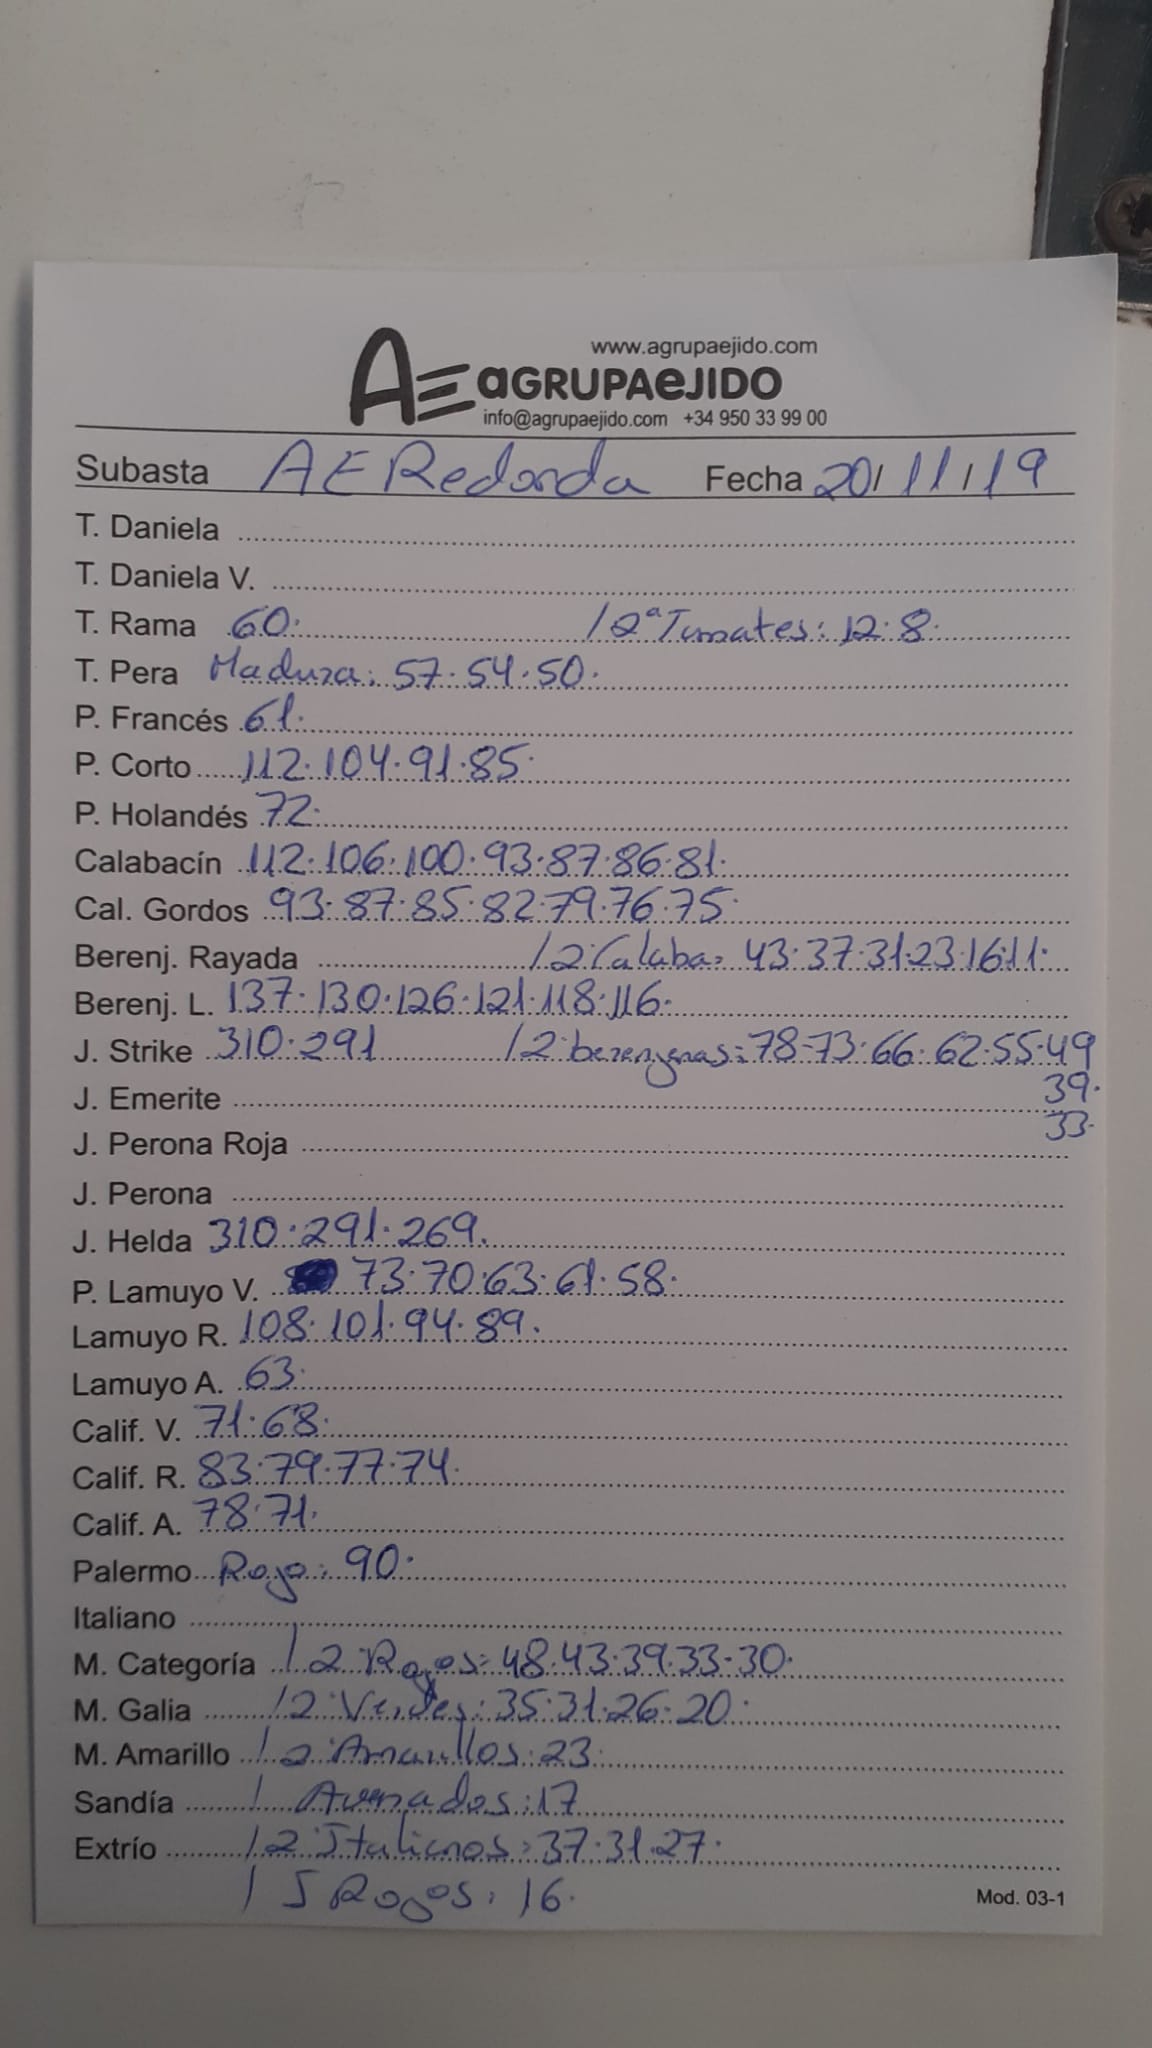 www.agrupaejido.com
AE aGRUPAeJIDO
info@agrupaejido.com +34 950 33 99 00
Subasta AE Redonda Fecha 20/11/19
T. Daniela
T. Daniela V.
T. Rama 60. / 2ª Tomates: 12.8.
T. Pera Madura: 57.54.50.
P. Francés 61.
P. Corto 112.104.91.85.
P. Holandés 72.
Calabacín 112.106.100.93.87.86.81.
Cal. Gordos 93.87.85.82.79.76.75.
Berenj. Rayada / 2 Calaba: 43.37.31.23.16.11.
Berenj. L. 137.130.126.121.118.116.
J. Strike 310.291 / 2 berenjenas: 78.73.66.62.55.49
J. Emerite 39.
33.
J. Perona Roja
J. Perona
J. Helda 310.291.269.
P. Lamuyo V. 73.70.63.61.58.
Lamuyo R. 108.101.94.89.
Lamuyo A. 63.
Calif. V. 71.68.
Calif. R. 83.79.77.74.
Calif. A. 78.71.
Palermo Rojo: 90.
Italiano
M. Categoría / 2 Rojos: 48.43.39.33.30.
M. Galia / 2 Verdes: 35.31.26.20.
M. Amarillo / 2 Amarillos: 23.
Sandía / Asurados: 17
Extrío / 2 Italianos: 37.31.27.
/ S Rojos: 16.
Mod. 03-1